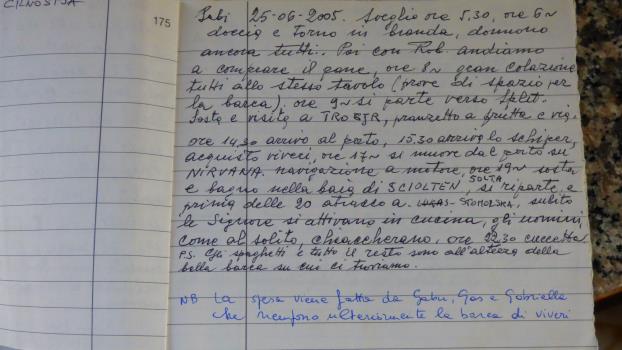 CILNOSTJA
175
Sabi 25-06-2005. Sveglia ore 5.30, ore 6~
doccia e torno in branda, dormono
ancora tutti. Poi con Rob. andiamo
a comprare il pane, ore 8~ gran colazione
tutti allo stesso tavolo (prove di spazio per
la barca), ore 9~ si parte verso Split.
Sosta e visita a TROGIR, pranzetto a frutta e via.
ore 14,30 arrivo al porto, 15.30 arriva lo schiper,
acquisto viveri, ore 17~ si muove dal porto su
NIRVANA. navigazione a motore, ore 19~ sosta
e bagno nella baia di SCIOLTEN, SOLTA, si riparte e
prima delle 20 attracco a STOMORSKA, subito
le Signore si attivano in cucina, gli uomini,
come al solito, chiaccherano, ore 22,30 cuccetta
P.S. Gli spaghetti e tutto il resto sono all'altezza della
bella barca su cui ci troviamo.
NB La spesa viene fatta da Gabri, Gas e Gabriella
che riempono ulteriormente la barca di viveri